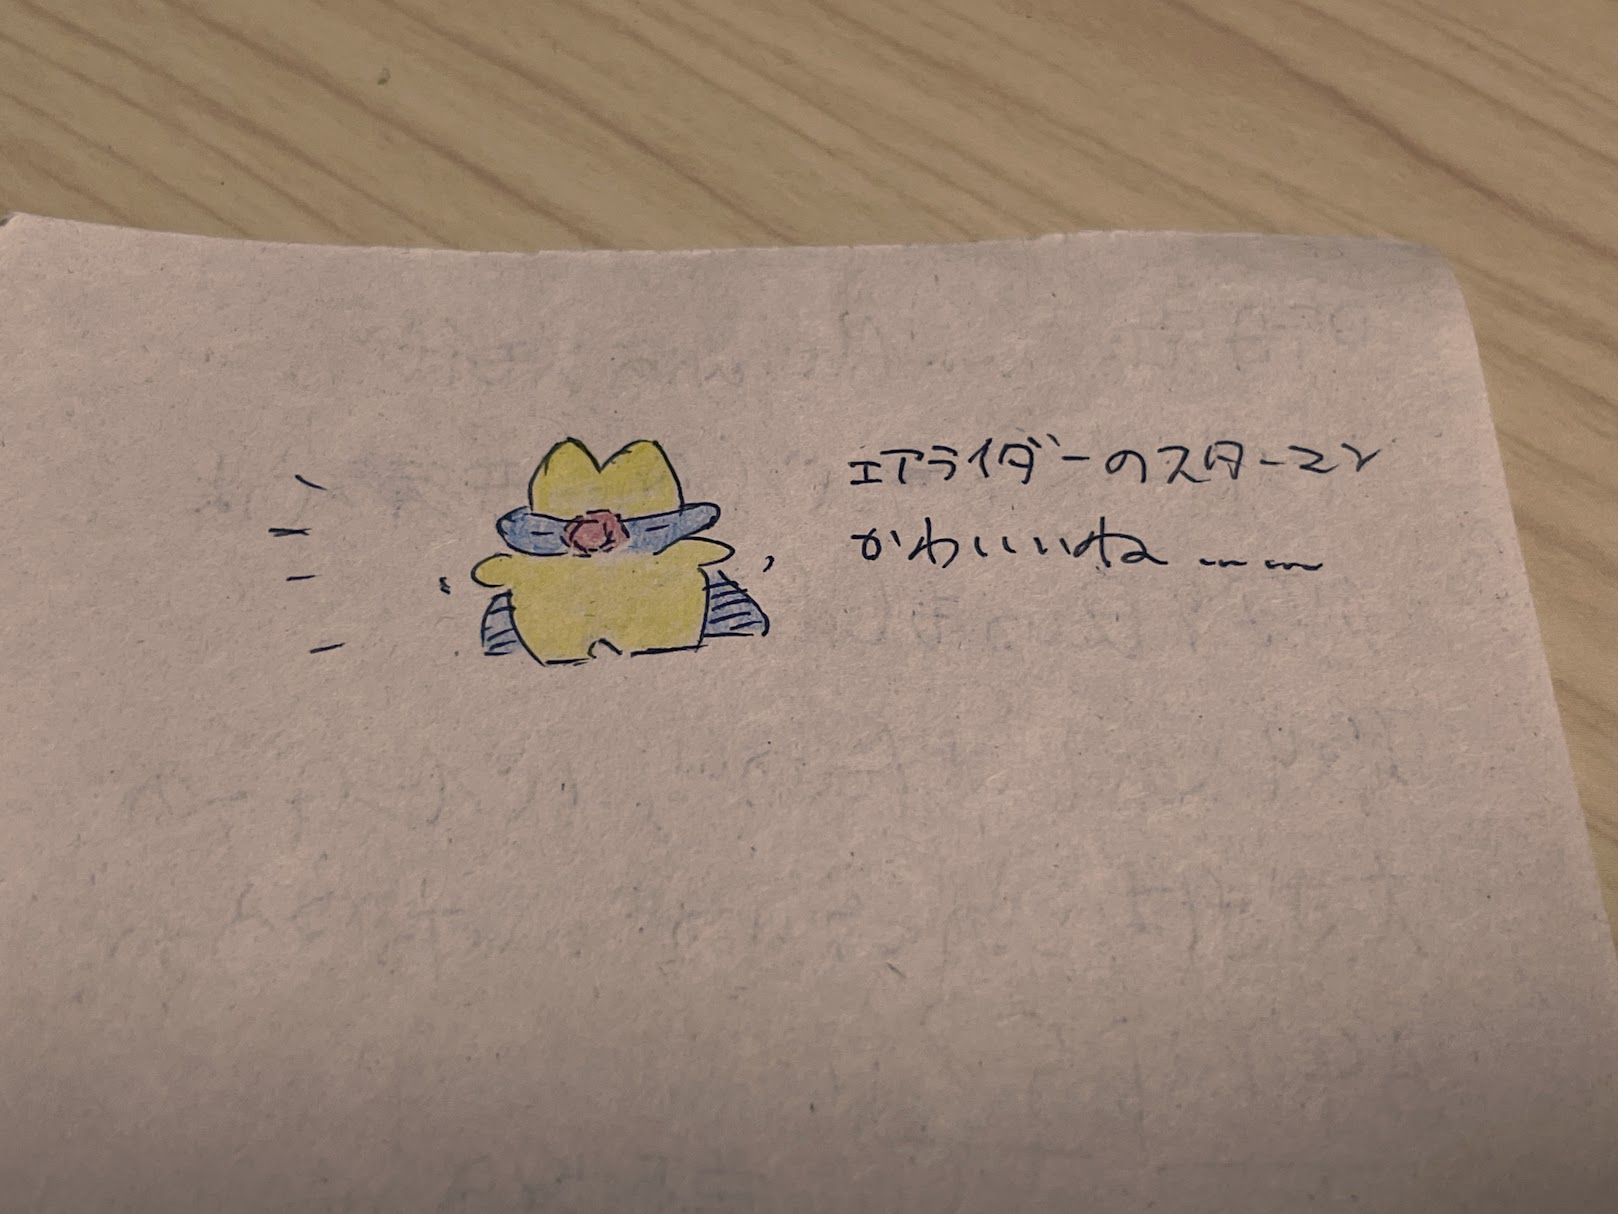 エアライダーのスターマン
かわいいね……